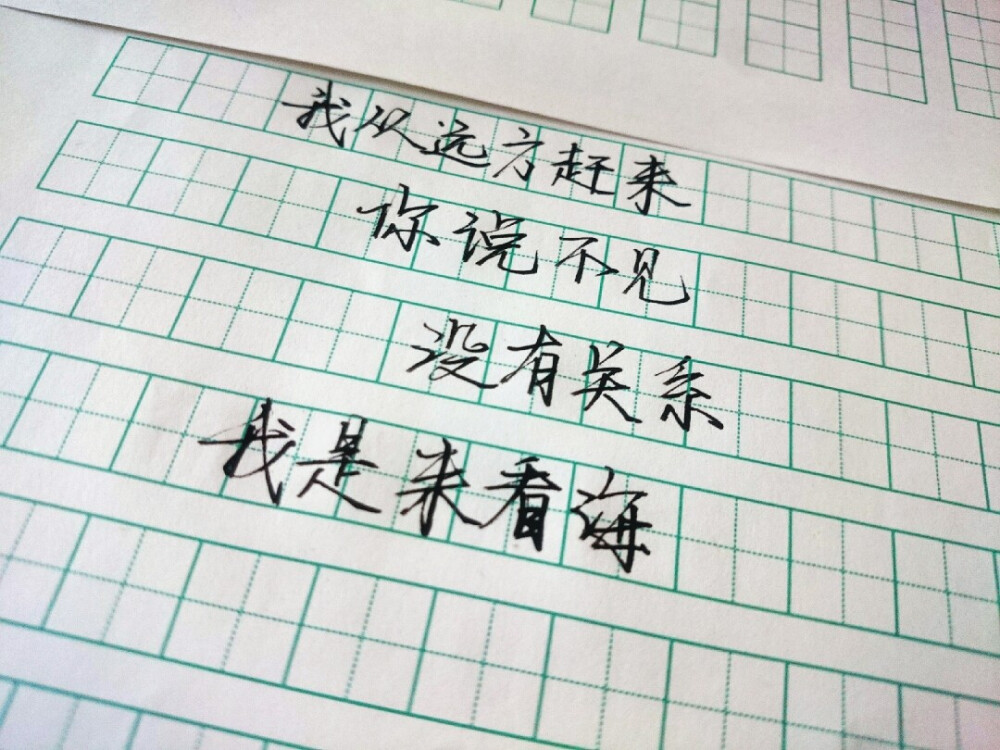 我从远方赶来
你说不见
没有关系
我是来看海